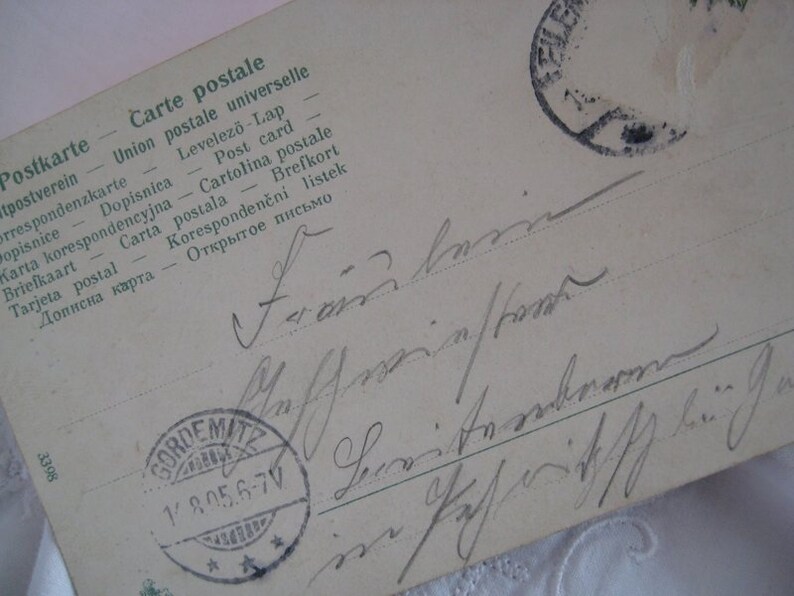 Postkarte — Carte postale
ltpostverein — Union postale universelle
orrespondenzkarte — Levelező-Lap —
Dopisnice — Dopisnica — Post card —
Karta korespondencyjna — Cartolina postale
Briefkaart — Carta postala — Brefkort
Tarjeta postal — Korespondenční listek
Дописна карта — Открытое письмо
EILEN
Fräulein
Geschwister
Breitenborn
in
3398
GORDEMITZ
8.05.6-7V